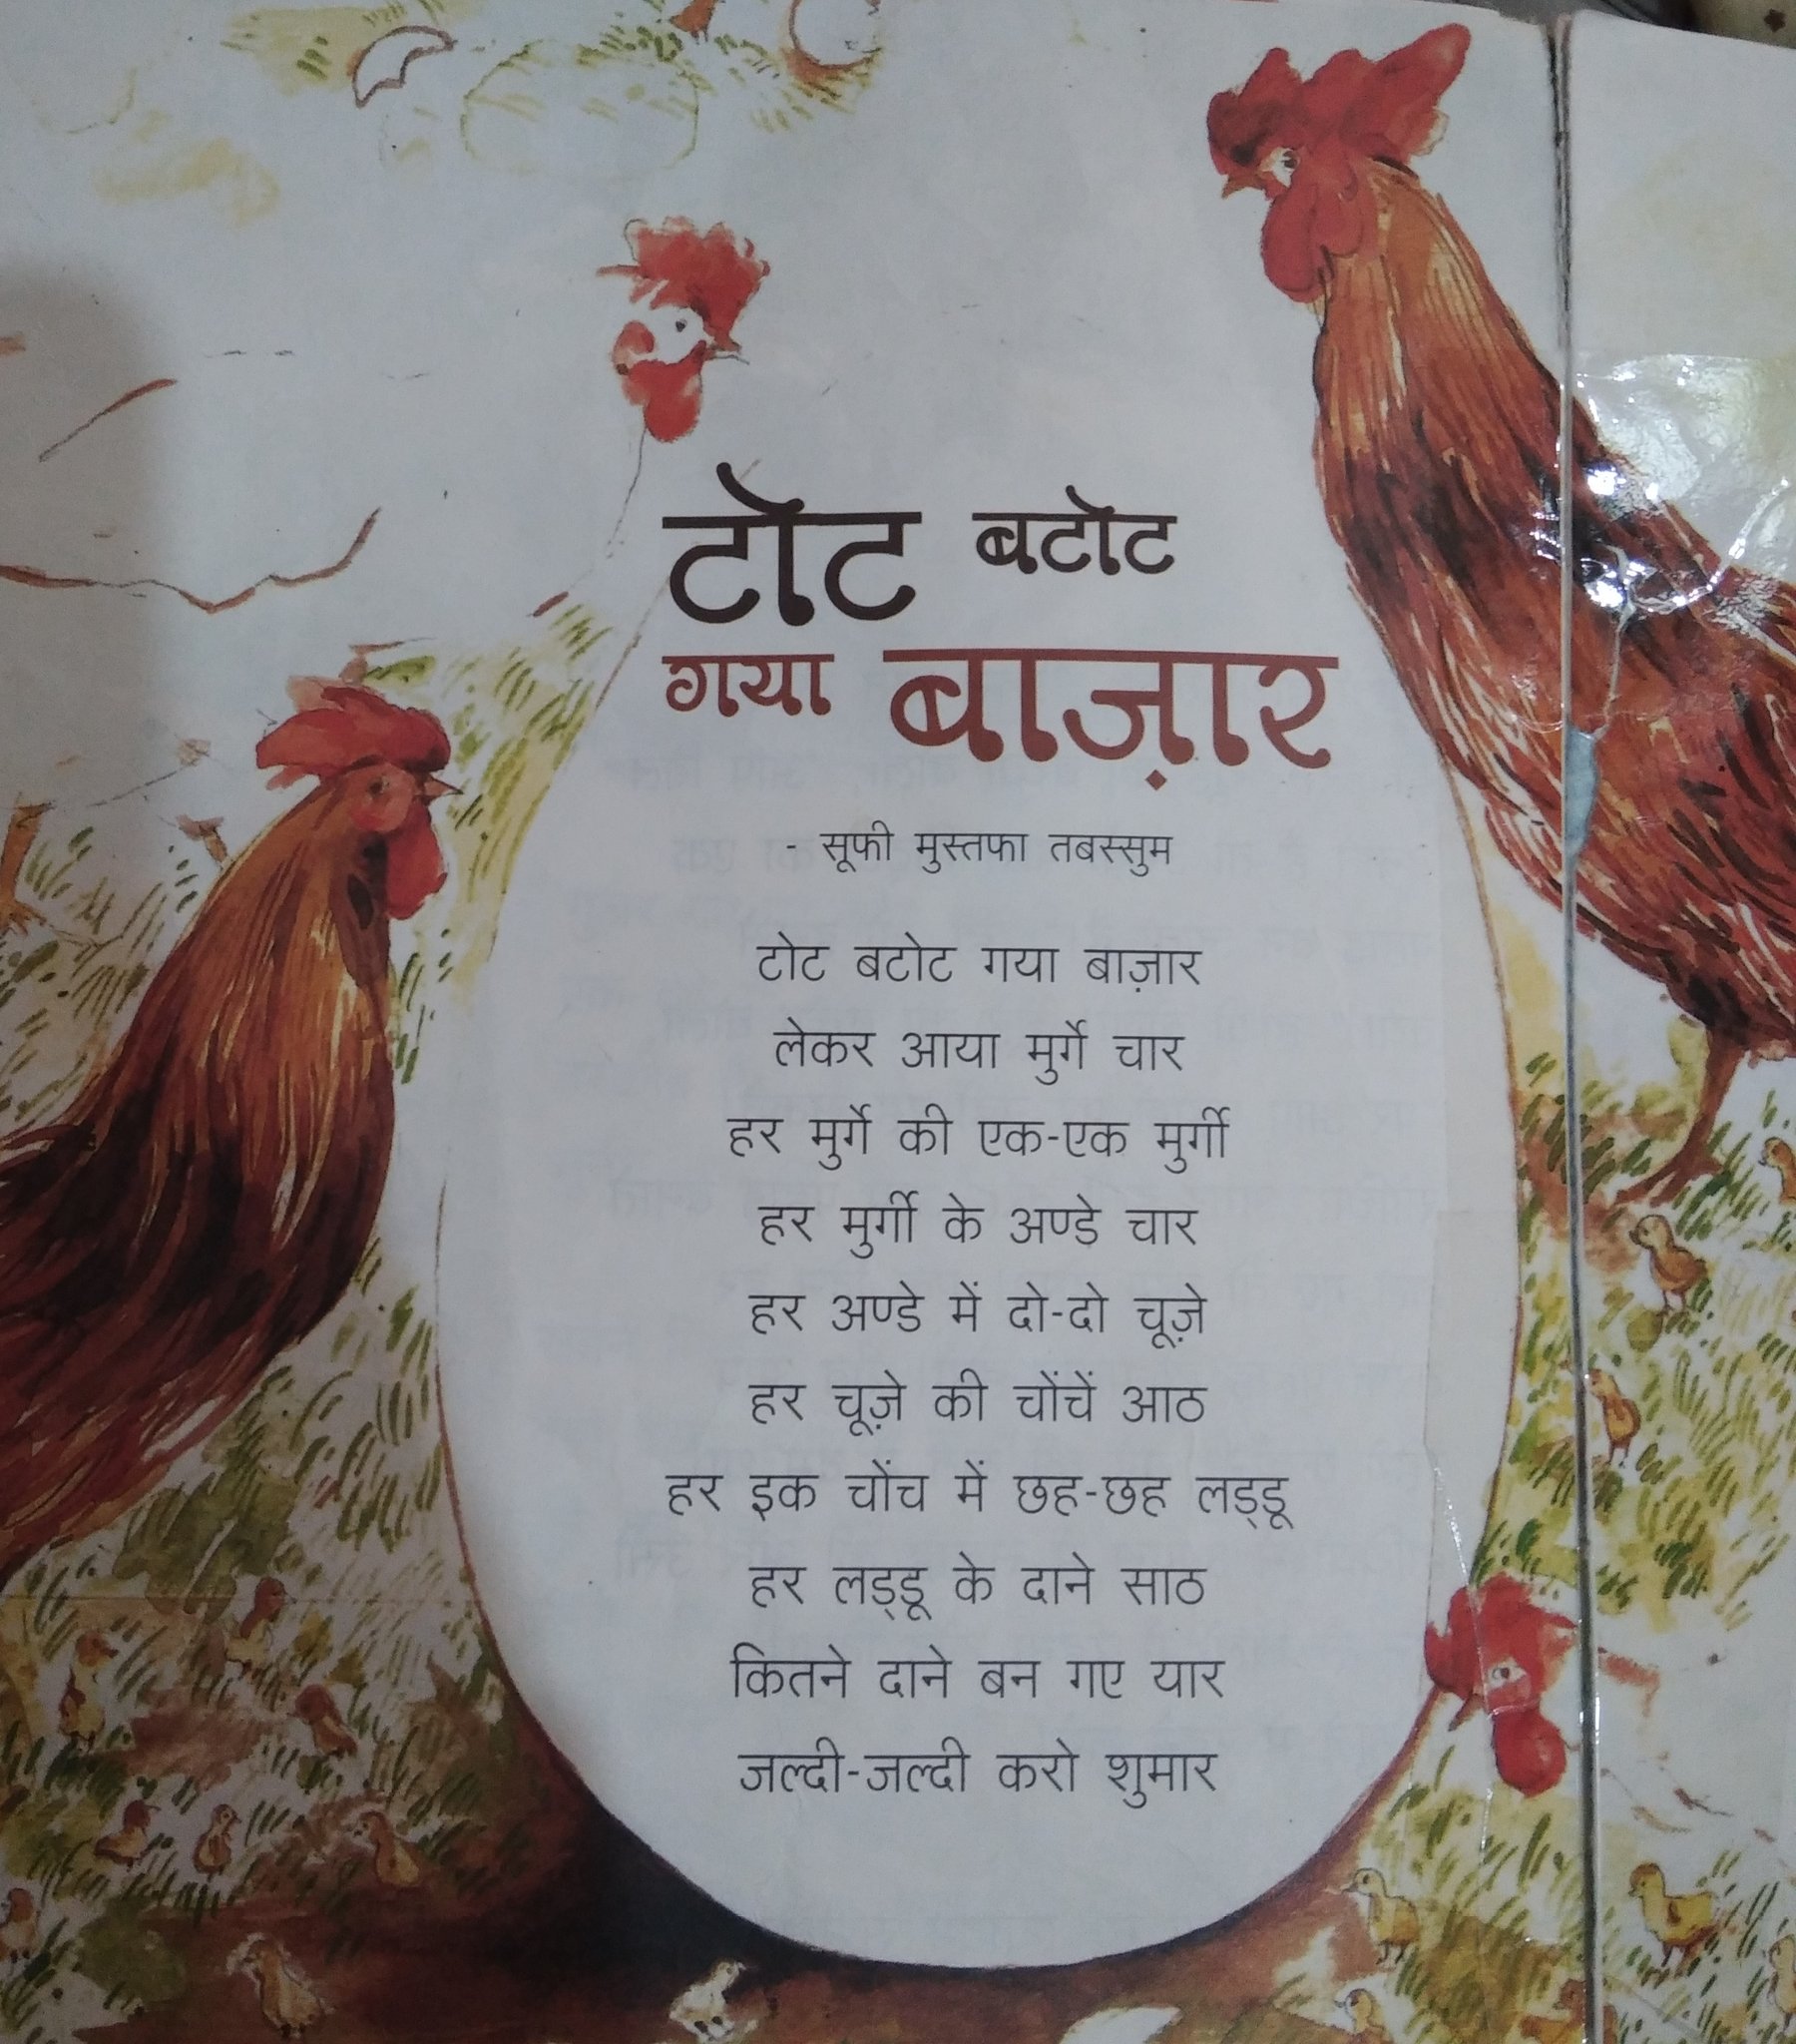 टोट बटोट
गया बाज़ार
- सूफी मुस्तफा तबस्सुम
टोट बटोट गया बाज़ार
लेकर आया मुर्गे चार
हर मुर्गे की एक-एक मुर्गी
हर मुर्गी के अण्डे चार
हर अण्डे में दो-दो चूज़े
हर चूज़े की चोंचें आठ
हर इक चोंच में छह-छह लड्डू
हर लड्डू के दाने साठ
कितने दाने बन गए यार
जल्दी-जल्दी करो शुमार